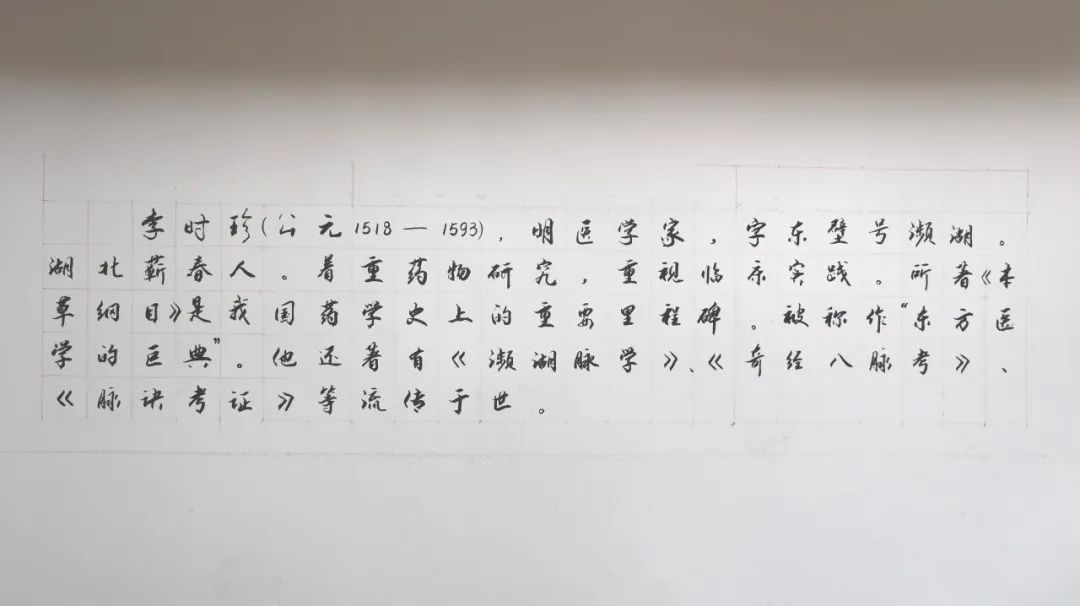 李时珍(公元1518—1593)，明医学家，字东壁号濒湖。
湖北蕲春人。着重药物研究，重视临床实践。所著《本
草纲目》是我国药学史上的重要里程碑。被称作“东方医
学的巨典”。他还著有《濒湖脉学》、《奇经八脉考》、
《脉诀考证》等流传于世。